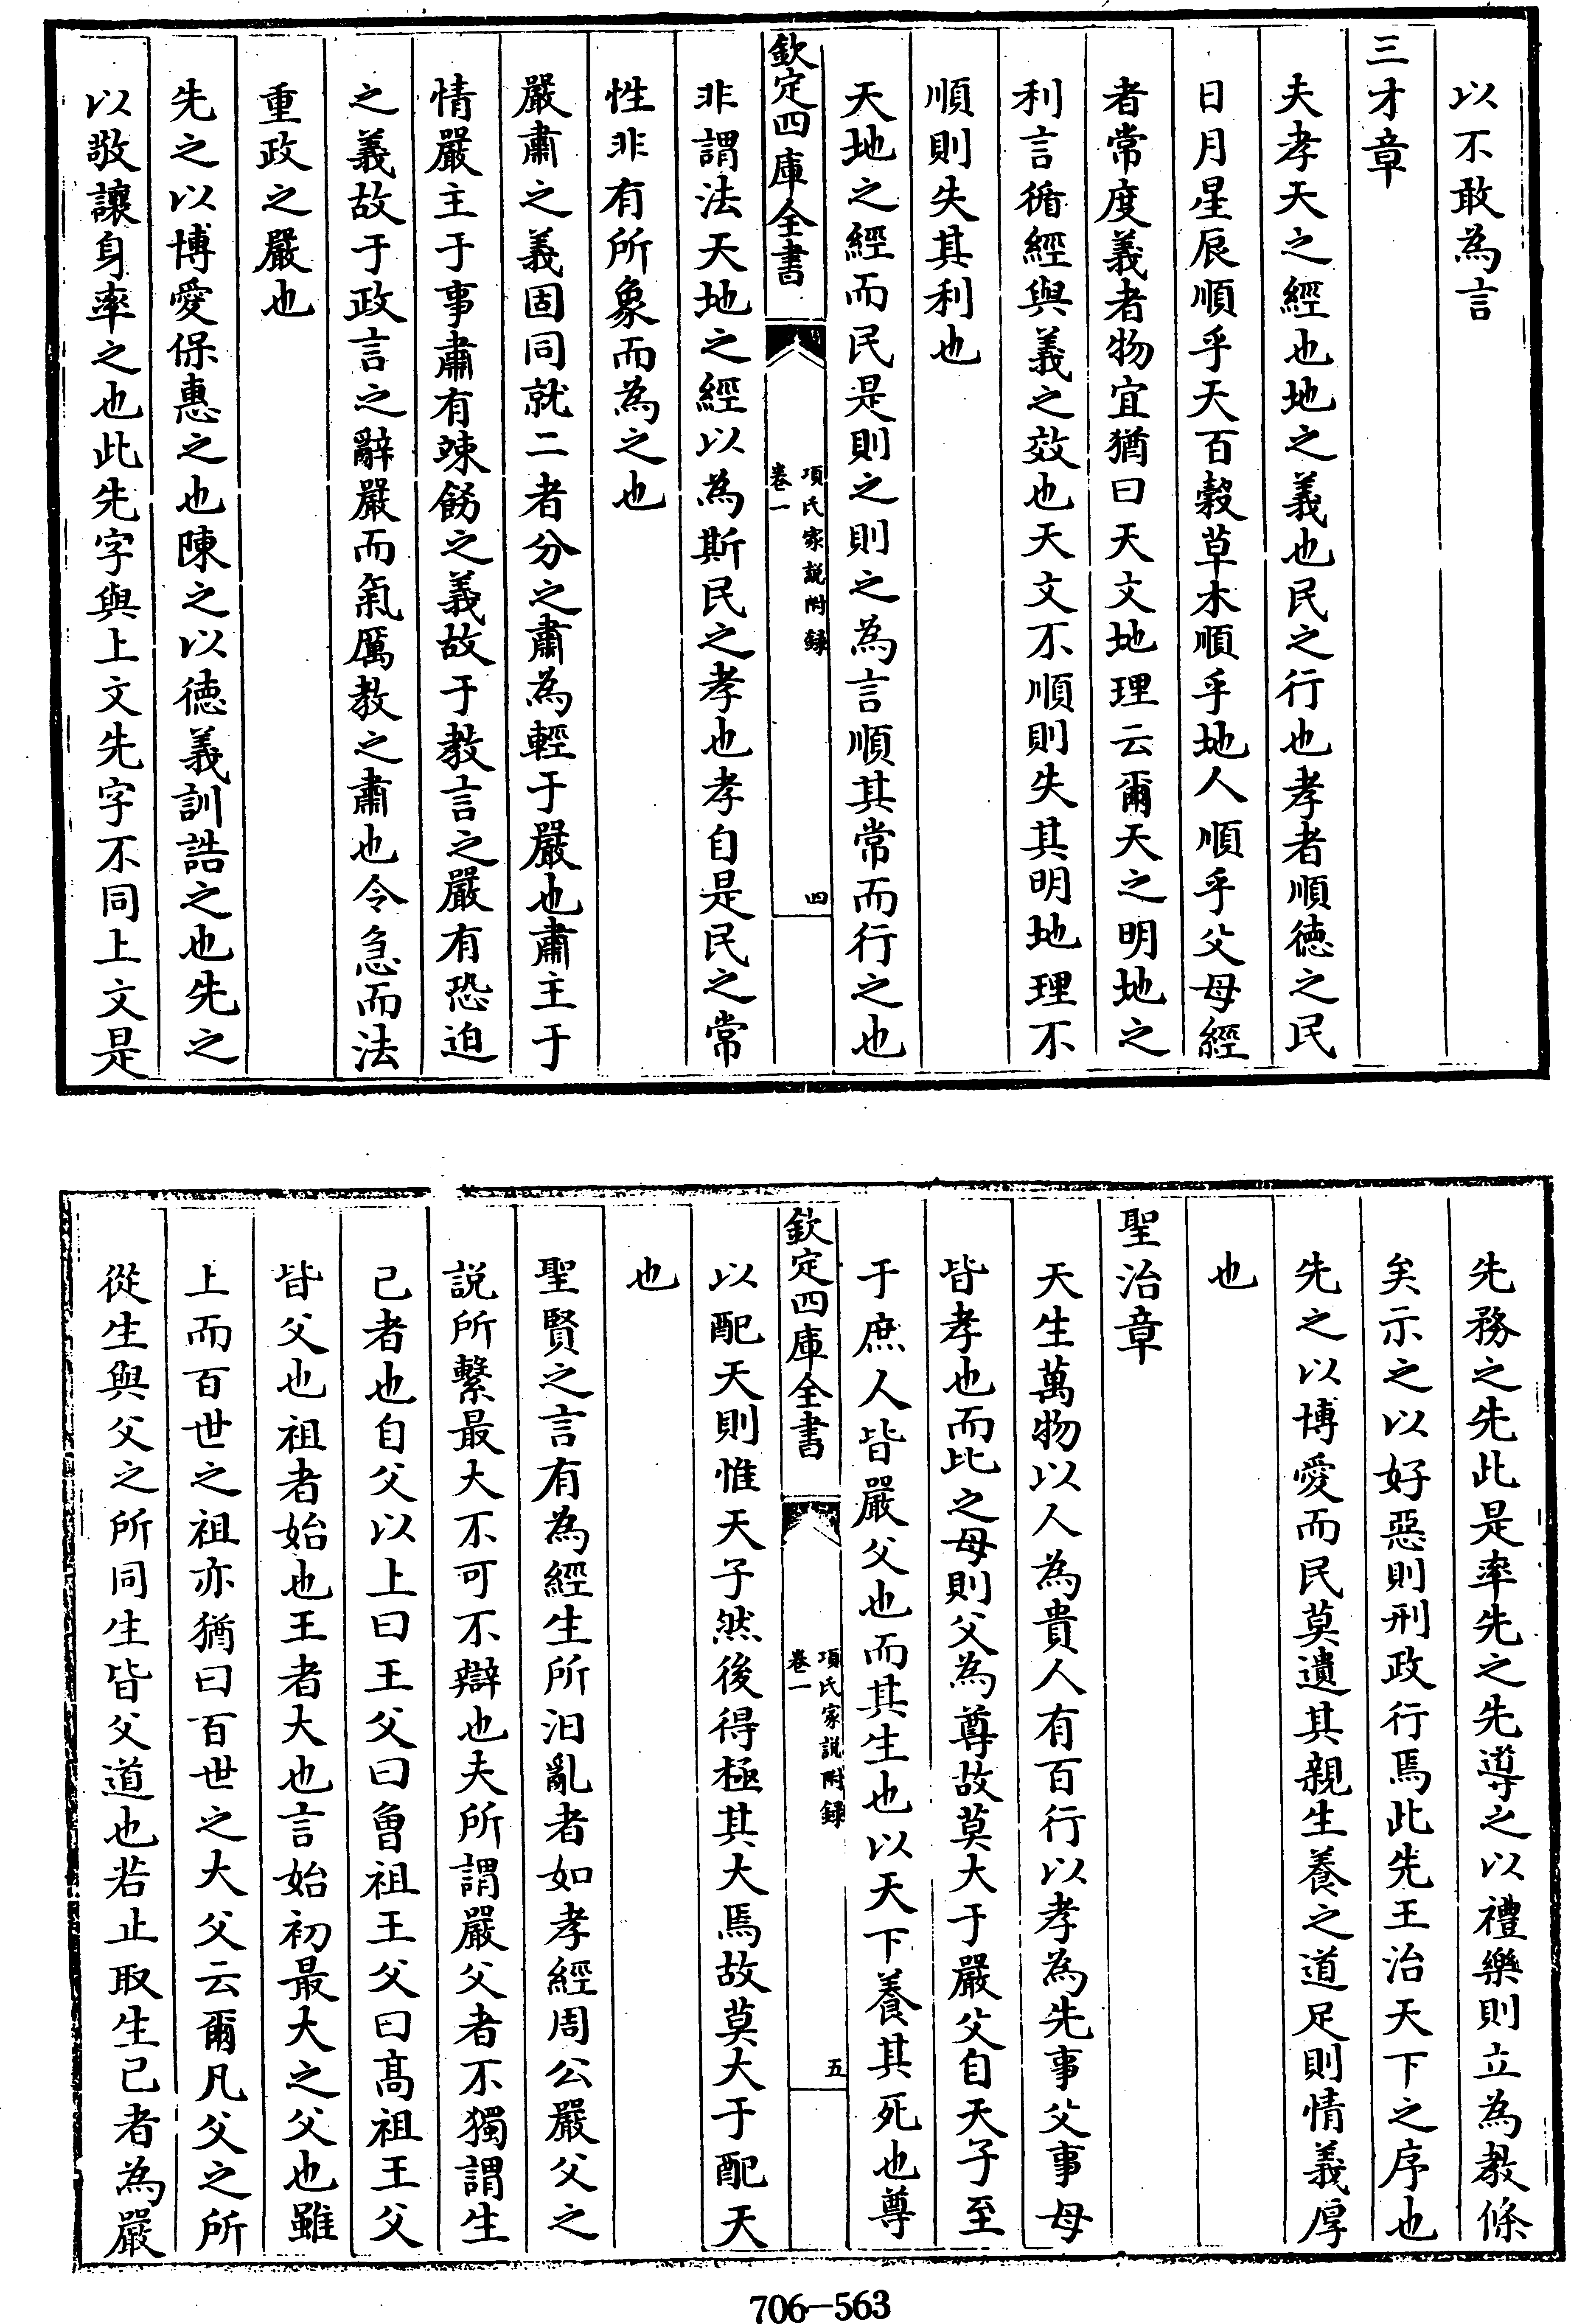 以不敢為言
三才章
夫孝天之經也地之義也民之行也孝者順徳之民
日月星辰順乎天百糓草木順乎地人順乎父母經
者常度義者物宜猶曰天文地理云爾天之明地之
利言循經與義之效也天文不順則失其明地理不
順則失其利也
天地之經而民是則之則之為言順其常而行之也
欽定四庫全書
項氏家說附録
卷一
四
非謂法天地之經以為斯民之孝也孝自是民之常
性非有所象而為之也
嚴肅之義固同就二者分之肅為輕于嚴也肅主于
情嚴主于事肅有竦飭之義故于教言之嚴有恐迫
之義故于政言之辭嚴而氣厲教之肅也令急而法
重政之嚴也
先之以博愛保惠之也陳之以徳義訓誥之也先之
以敬讓身率之也此先字與上文先字不同上文是
先務之先此是率先之先導之以禮樂則立為教條
矣示之以好惡則刑政行焉此先王治天下之序也
先之以博愛而民莫遺其親生養之道足則情義厚
也
聖治章
天生萬物以人為貴人有百行以孝為先事父事母
皆孝也而比之母則父為尊故莫大于嚴父自天子至
于庶人皆嚴父也而其生也以天下養其死也尊
欽定四庫全書
項氏家說附録
卷一
五
以配天則惟天子然後得極其大焉故莫大于配天
也
聖賢之言有為經生所汩亂者如孝經周公嚴父之
説所繫最大不可不辯也夫所謂嚴父者不獨謂生
已者也自父以上曰王父曰曾祖王父曰髙祖王父
皆父也祖者始也王者大也言始初最大之父也雖
上而百世之祖亦猶曰百世之大父云爾凡父之所
從生與父之所同生皆父道也若止取生已者為嚴
706—563